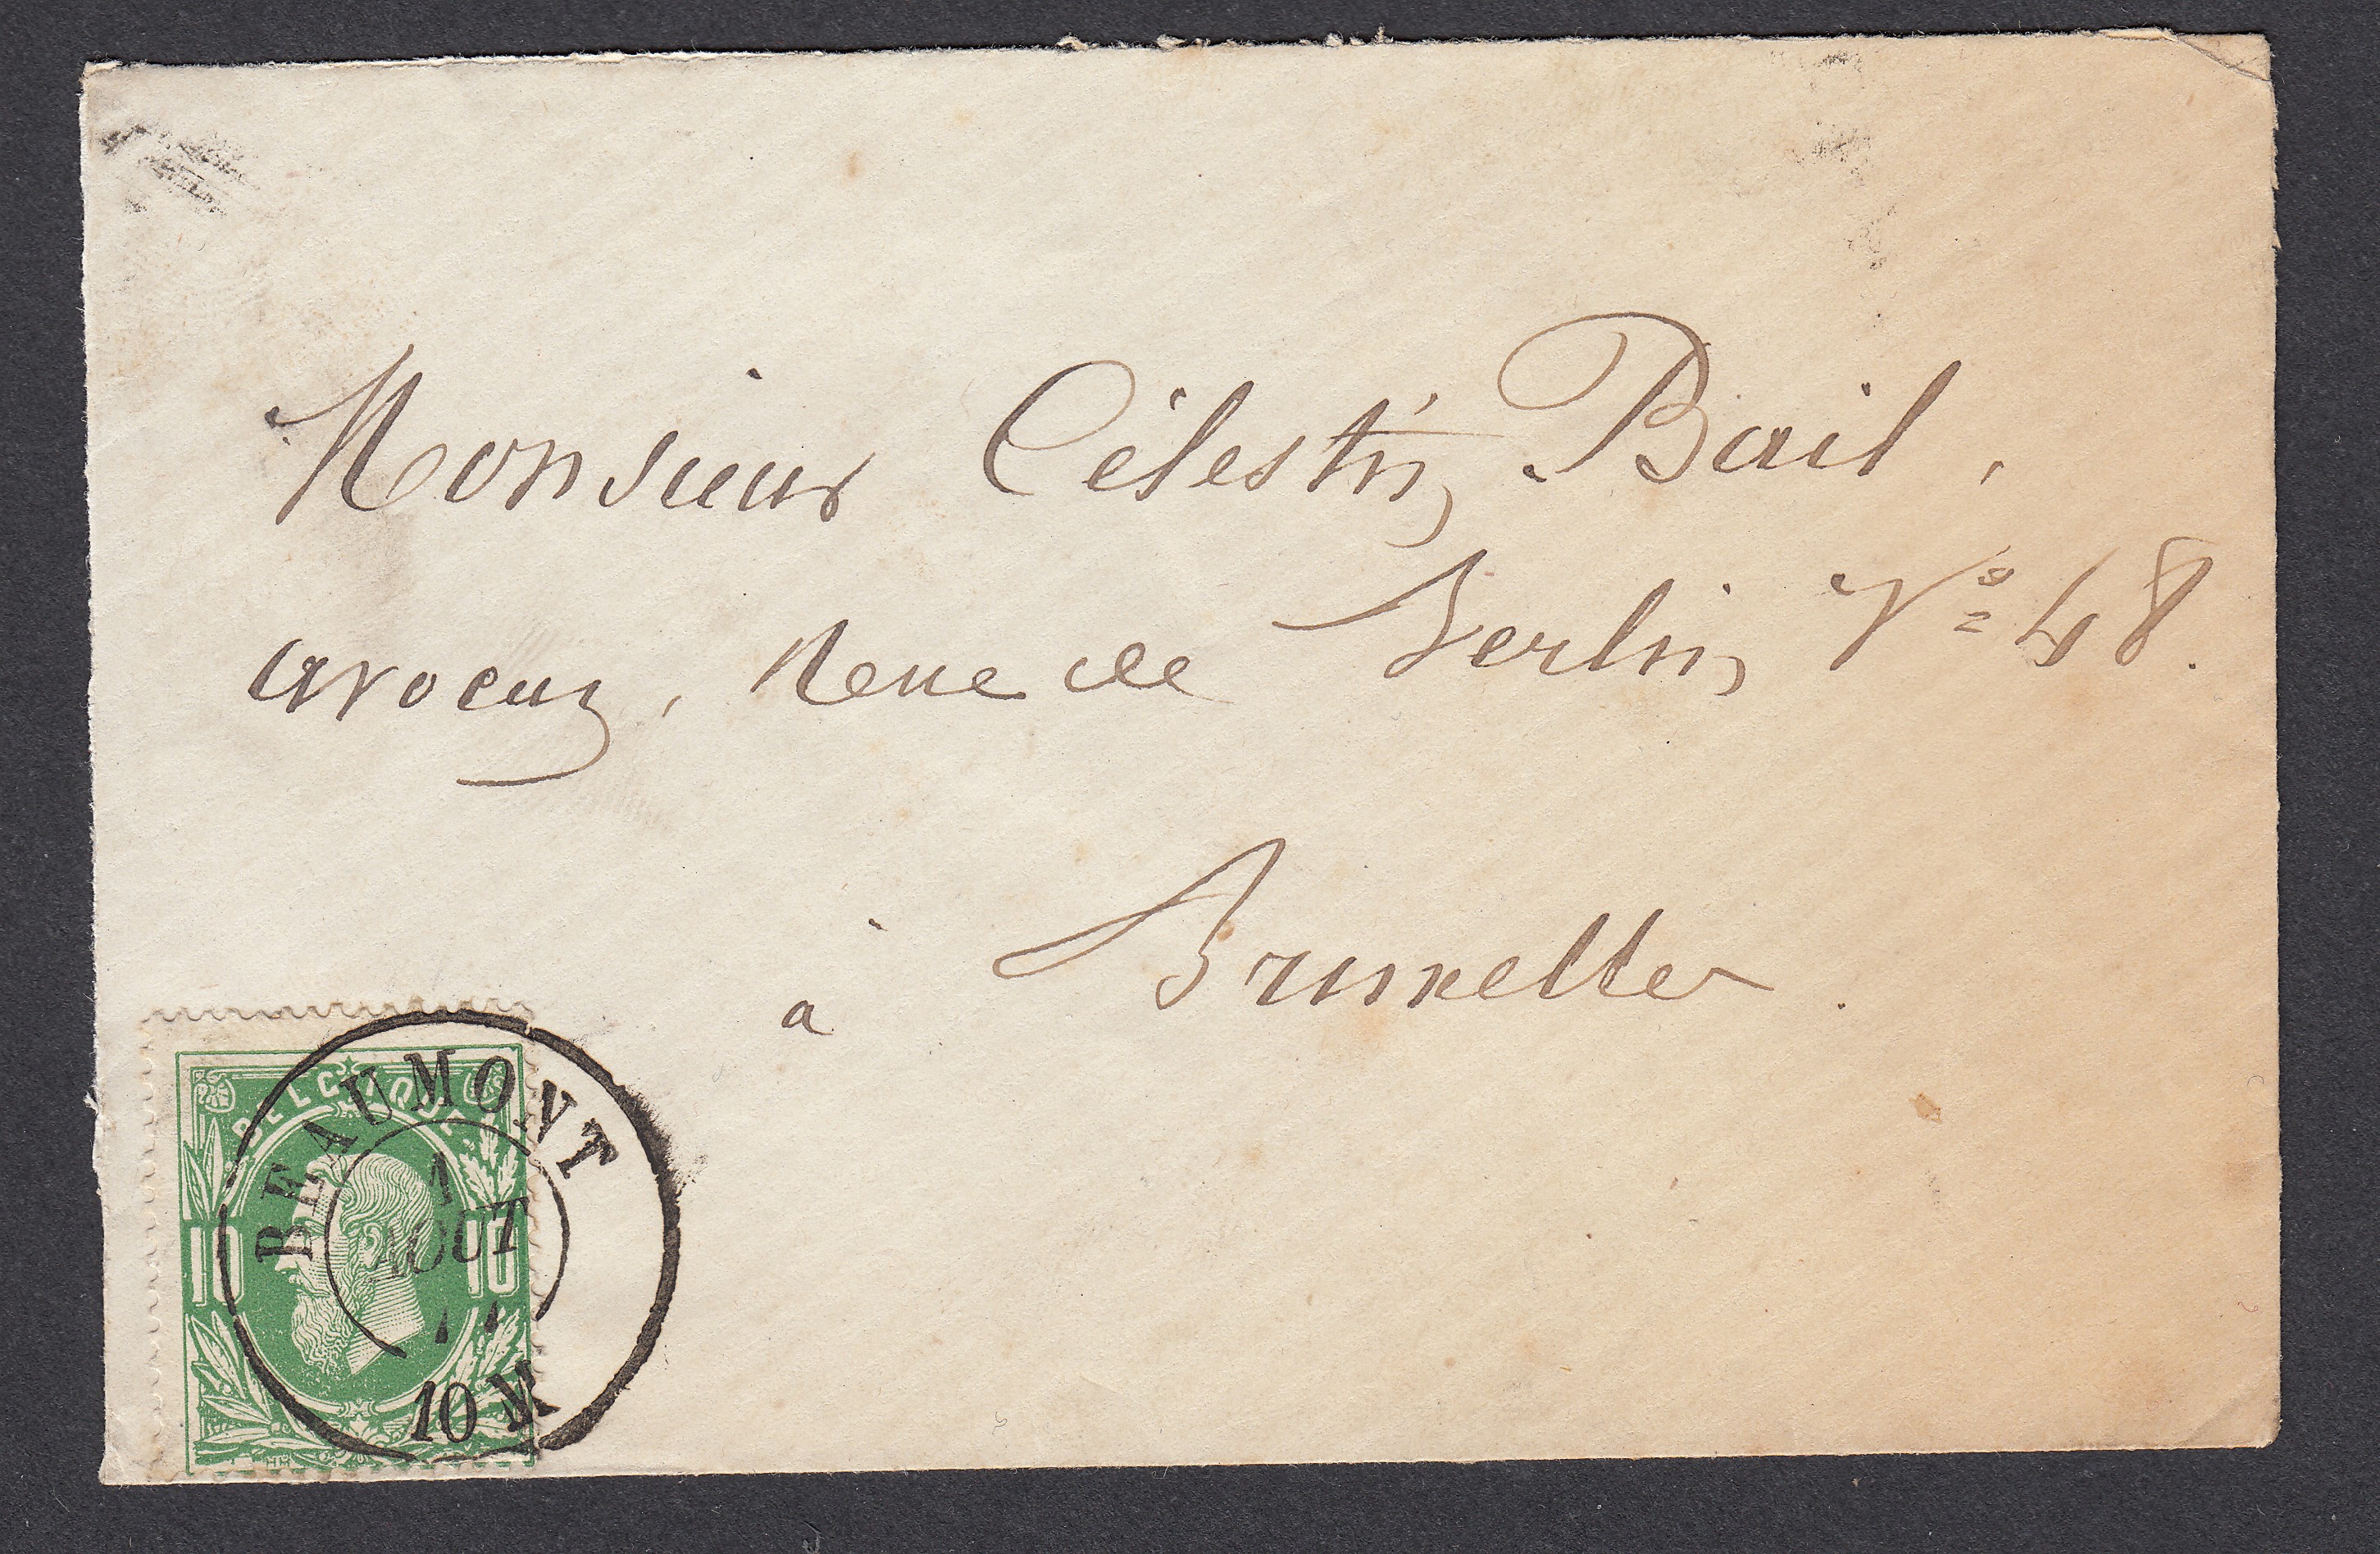 Monsieur Célestin Bail,
avocat, Rue de Berlin, N° 48.
à Bruxelles.
BELGIQUE
10 10
BEAUMONT
1
AOUT
10 M